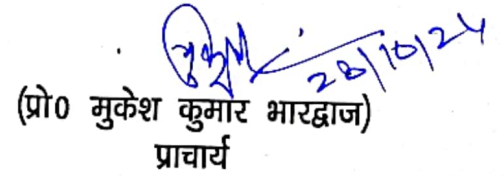 28/10/24
(प्रो0 मुकेश कुमार भारद्वाज)
प्राचार्य